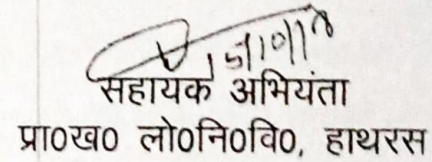 सहायक अभियंता
प्रा०ख० लो०नि०वि०, हाथरस